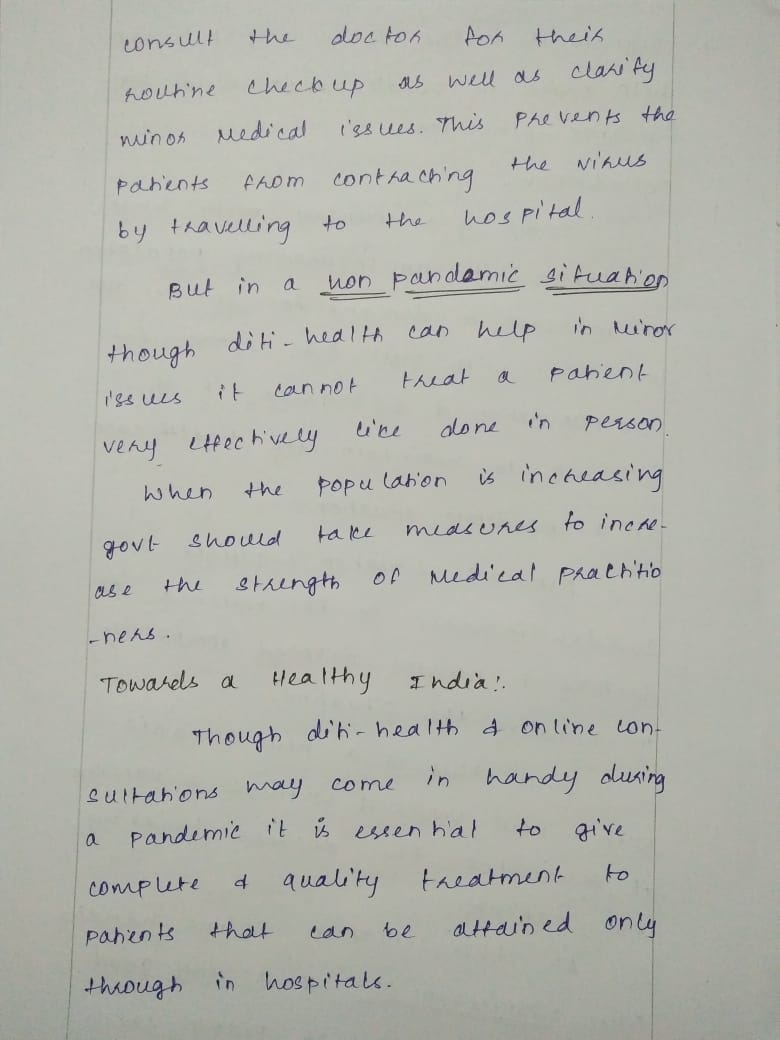 consult the doctor for their
routine checkup as well as clarify
minor Medical issues. This prevents the
patients from contracting the virus
by travelling to the hospital.
But in a non pandamic situation
though diti-health can help in minor
issues it cannot treat a patient
very effectively like done in person.
When the population is increasing
govt should take measures to incre-
ase the strength of Medical practitio
-ners.
Towards a Healthy India:.
Though diti-health & online con-
sultations may come in handy during
a pandemic it is essential to give
complete & quality treatment to
patients that can be attained only
through in hospitals.